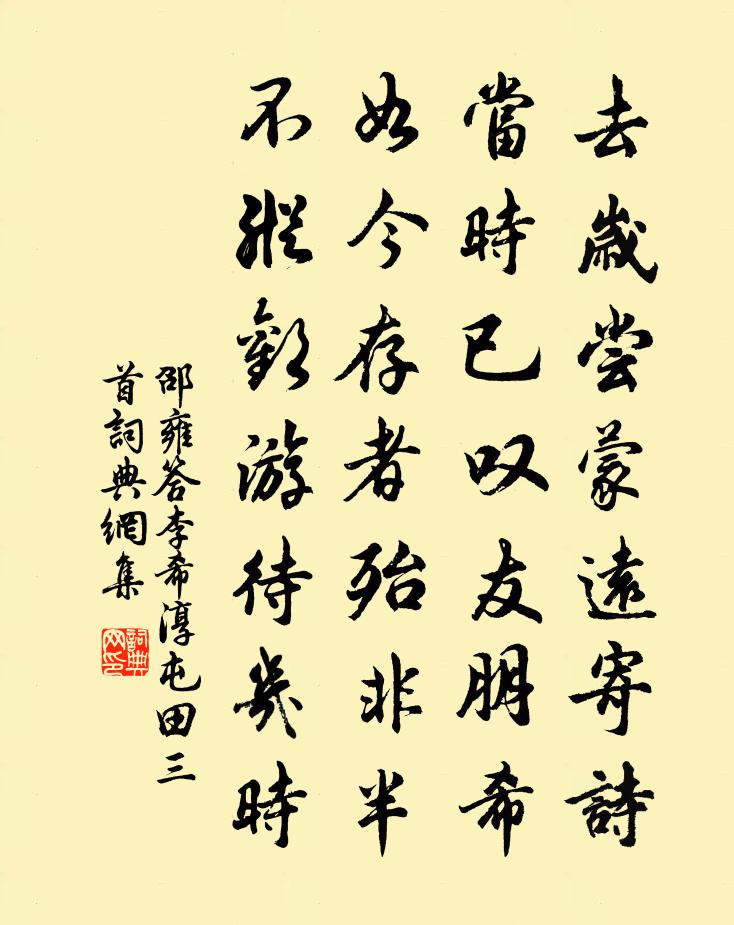 去歲嘗蒙遠寄詩
當時已叹友朋希
如今存者殆非半
不縱歡游待幾時
邵雍答李希淳屯田三
首詞典網集
詞典
网印